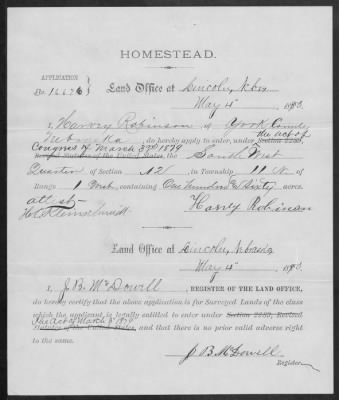 HOMESTEAD.
APPLICATION
No. 16676
Land Office at Lincoln, Nebr
May 4 1880.
I, Harvey Robinson, of York County
Nebraska, do hereby apply to enter, under Section 2289, the act of
Congress of March 3rd 1879
Revised Statutes of the United States, the South West
Quarter of Section 12, in Township 11 N. of
Range 1 West, containing One hundred & Sixty acres.
Harvey Robinson
Land Office at Lincoln,
May 4 1880.
I, J. B. McDowell, REGISTER OF THE LAND OFFICE,
do hereby certify that the above application is for Surveyed Lands of the class
which the applicant is legally entitled to enter under Section 2289, Revised
The Act of March 3d 1879
Statutes of the United States, and that there is no prior valid adverse right
to the same.
J. B. McDowell
Register